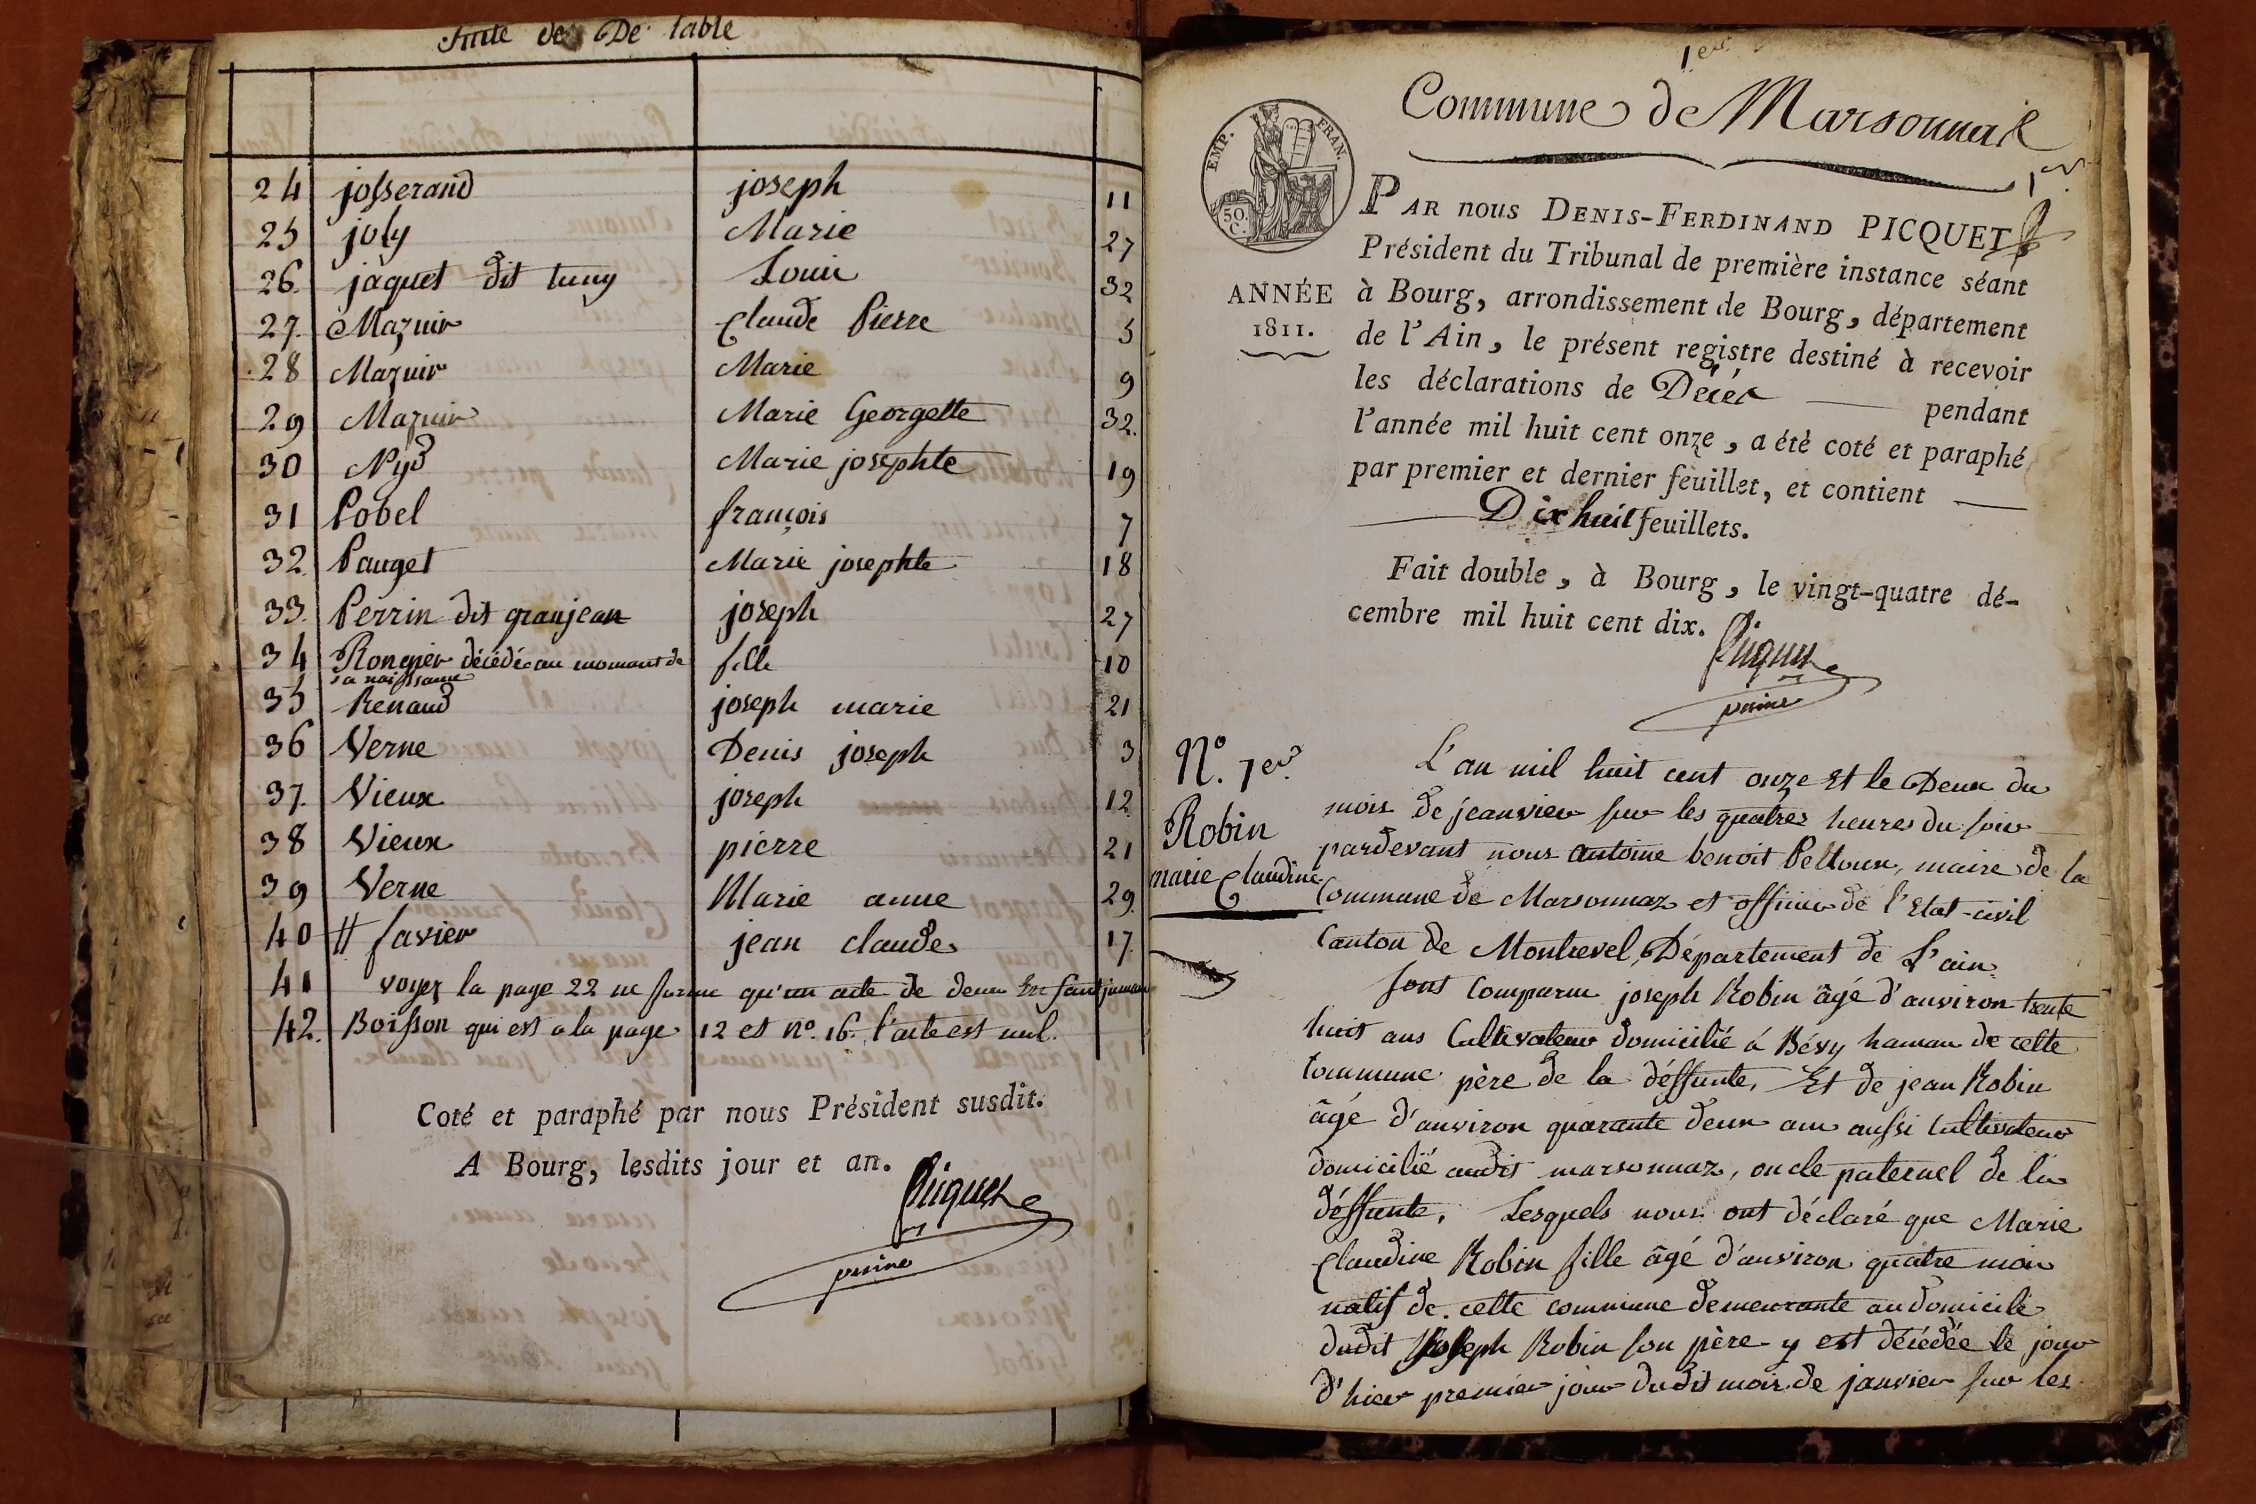 Suite de De table
24 josserand joseph 11
25 joly Marie 27
26. jaquet dit tuny Louis 32
27. Mazuir Claude Pierre 5
28 Mazuir Marie 9
29 Mazuir Marie Georgette 32.
30 Nyd Marie josephte 19
31 Pobel françois 7
32. Pauget Marie josephte 18
33. Perrin dit granjean joseph 27
34 Rongier décédée au momant de fille 10
sa naissance
35 Renaud joseph marie 21
36 Verne Denis joseph 3
37. Vieux joseph 12
38 Vieux pierre 21
39 Verne Marie anne 29.
40 # favier jean claude 17.
41 voyez la page 22 ne forme qu'un acte de deux Enfant jumau
42. Boisson qui est a la page 12 et nº. 16. l'acte est nul.
Coté et paraphé par nous Président susdit.
A Bourg, lesdits jour et an.
Picquet
1er
Commune de Marsonnaz
1er
EMP. FRAN.
50. C.
PAR nous DENIS-FERDINAND PICQUET
Président du Tribunal de première instance séant
ANNÉE à Bourg, arrondissement de Bourg, département
1811. de l'Ain, le présent registre destiné à recevoir
les déclarations de Décés pendant
l'année mil huit cent onze, a été coté et paraphé
par premier et dernier feuillet, et contient
Dix huit feuillets.
Fait double, à Bourg, le vingt-quatre dé-
cembre mil huit cent dix.
Picquet
Nº. 1er.
Robin
marie Claudine
L'an mil huit cent onze Et le Deux du
mois de jeanvier sur les quatres heures du soir
pardevant nous antoine benoit Pelloux, maire de la
Commune de Marsonnaz et officier de l'Etat-civil
Canton de Montrevel, Département de L'ain.
sont Comparu joseph Robin âgé d'anviron trente
huit ans Cultivateur domicilié á Bévy hamau de cette
Commune père de la déffunte, Et de jean Robin
âgé d'anviron quarante deux ans aussi Cultivateur
domicilié audit marsonnaz, oncle paternel de la
déffunte, Lesquels nous ont déclaré que Marie
Claudine Robin fille âgé d'anviron quatre mois
natif de cette commune demeurante au domicile
dudit joseph Robin son père y est décédée le jour
d'hier premier jour dudit mois de janvier sur les